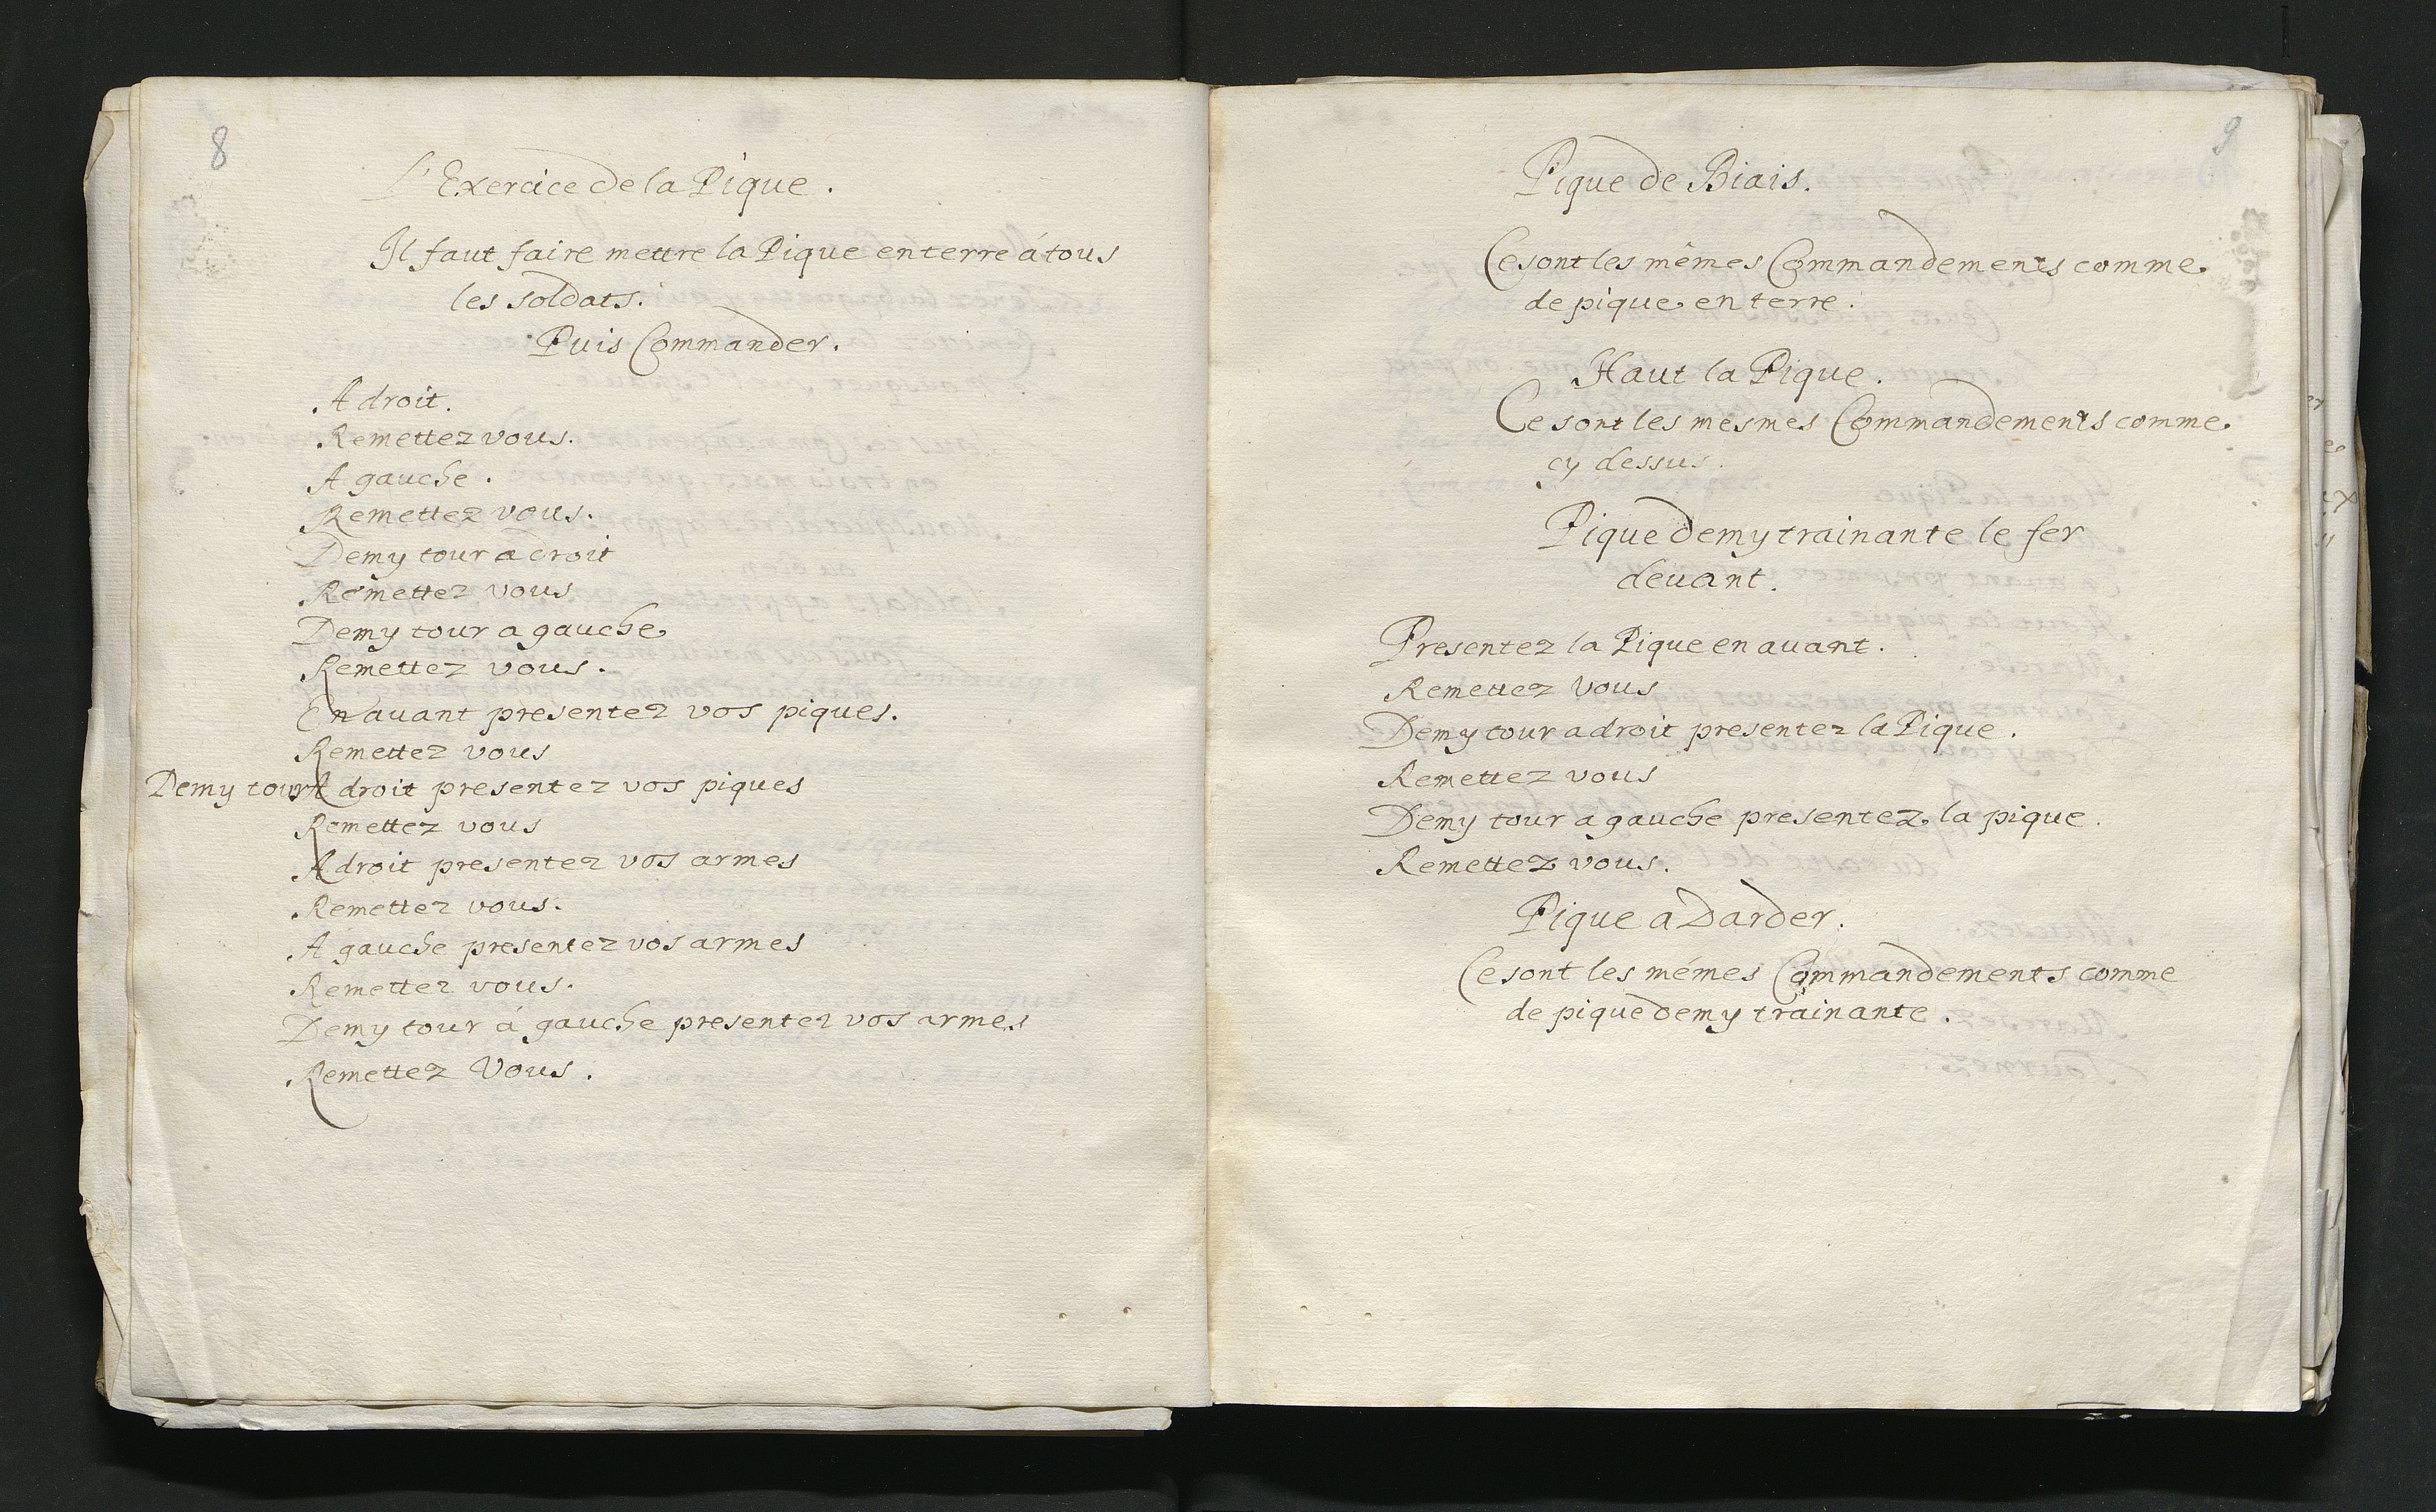 8
L'Exercice de la Pique.
Il faut faire mettre la Pique en terre á tous
les soldats.
Puis Commander.
A droit.
Remettez vous.
A gauche.
Remettez vous.
Demy tour a droit
Remettez vous
Demy tour a gauche
Remettez vous.
En auant presentez vos piques.
Remettez vous
Demy tour A droit presentez vos piques
Remettez vous
A droit presentez vos armes
Remettez vous.
A gauche presentez vos armes
Remettez vous.
Demy tour á gauche presentez vos armes
Remettez Vous.
9
Pique de Biais.
Ce sont les mêmes Commandements comme
de pique en terre.
Haut la Pique.
Ce sont les mesmes Commandements comme
cy dessus.
Pique demy trainante le fer
deuant.
Presentez la Pique en auant.
Remettez vous
Demy tour a droit presentez la Pique.
Remettez vous
Demy tour a gauche presentez la pique.
Remettez vous.
Pique a Darder.
Ce sont les mémes Commandements comme
de pique demy trainante.